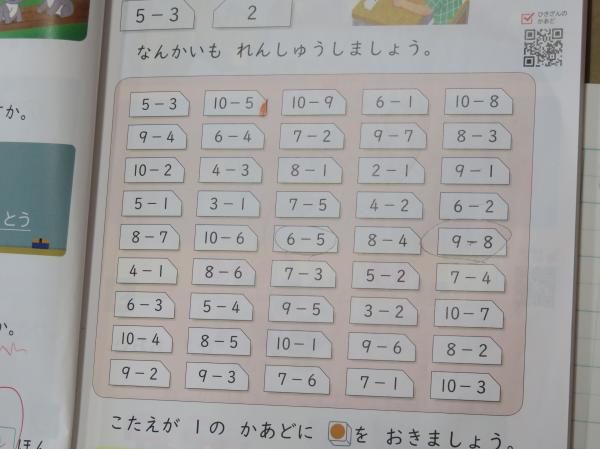 5－3 2
ひきざんの
かあど
なんかいも れんしゅうしましょう。
5－3 10－5 10－9 6－1 10－8
9－4 6－4 7－2 9－7 8－3
10－2 4－3 8－1 2－1 9－1
5－1 3－1 7－5 4－2 6－2
8－7 10－6 6－5 8－4 9－8
4－1 8－6 7－3 5－2 7－4
6－3 5－4 9－5 3－2 10－7
10－4 8－5 10－1 9－6 8－2
9－2 9－3 7－6 7－1 10－3
こたえが 1の かあどに を おきましょう。
か。
とう
か。
ほん